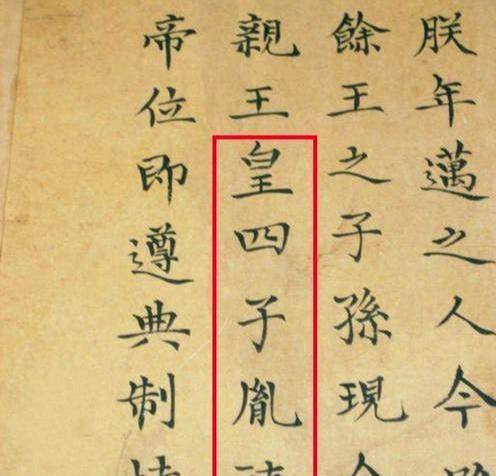 朕年邁之人今
餘王之子孫現
親王皇四子胤
帝位即遵典制